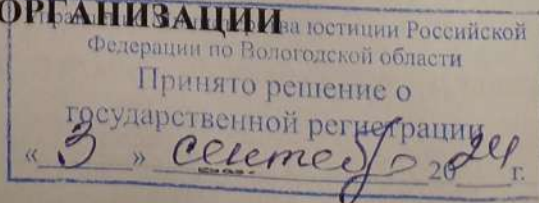 ОРГАНИЗАЦИИ
юстиции Российской
Федерации по Вологодской области
Принято решение о
государственной регистрации
« 3 » сентября 2024 г.